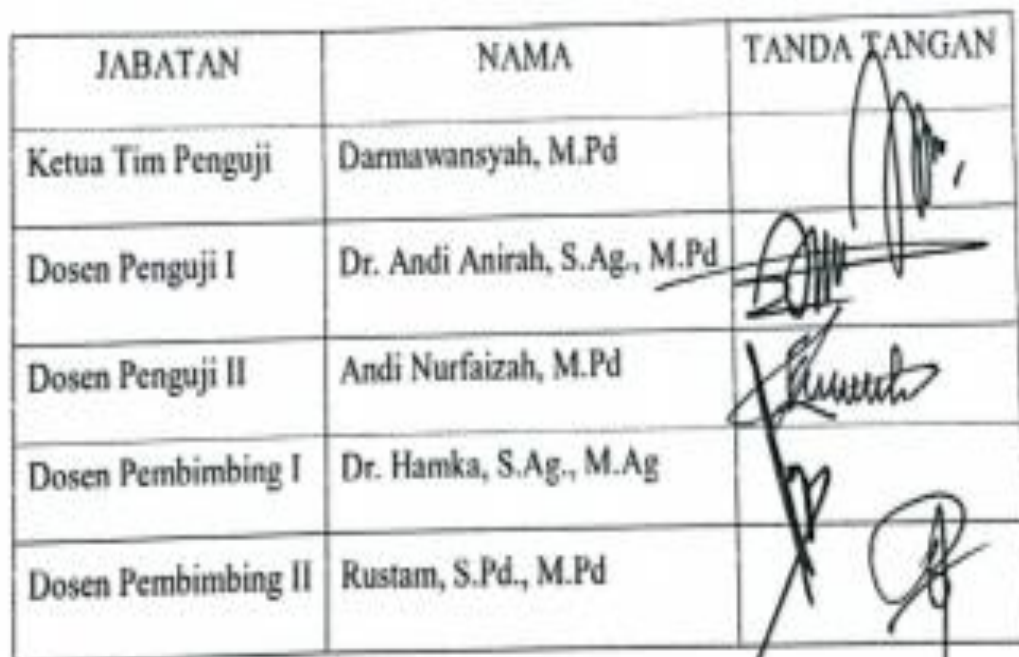 JABATAN NAMA TANDA TANGAN
Ketua Tim Penguji Darmawansyah, M.Pd
Dosen Penguji I Dr. Andi Anirah, S.Ag., M.Pd
Dosen Penguji II Andi Nurfaizah, M.Pd
Dosen Pembimbing I Dr. Hamka, S.Ag., M.Ag
Dosen Pembimbing II Rustam, S.Pd., M.Pd